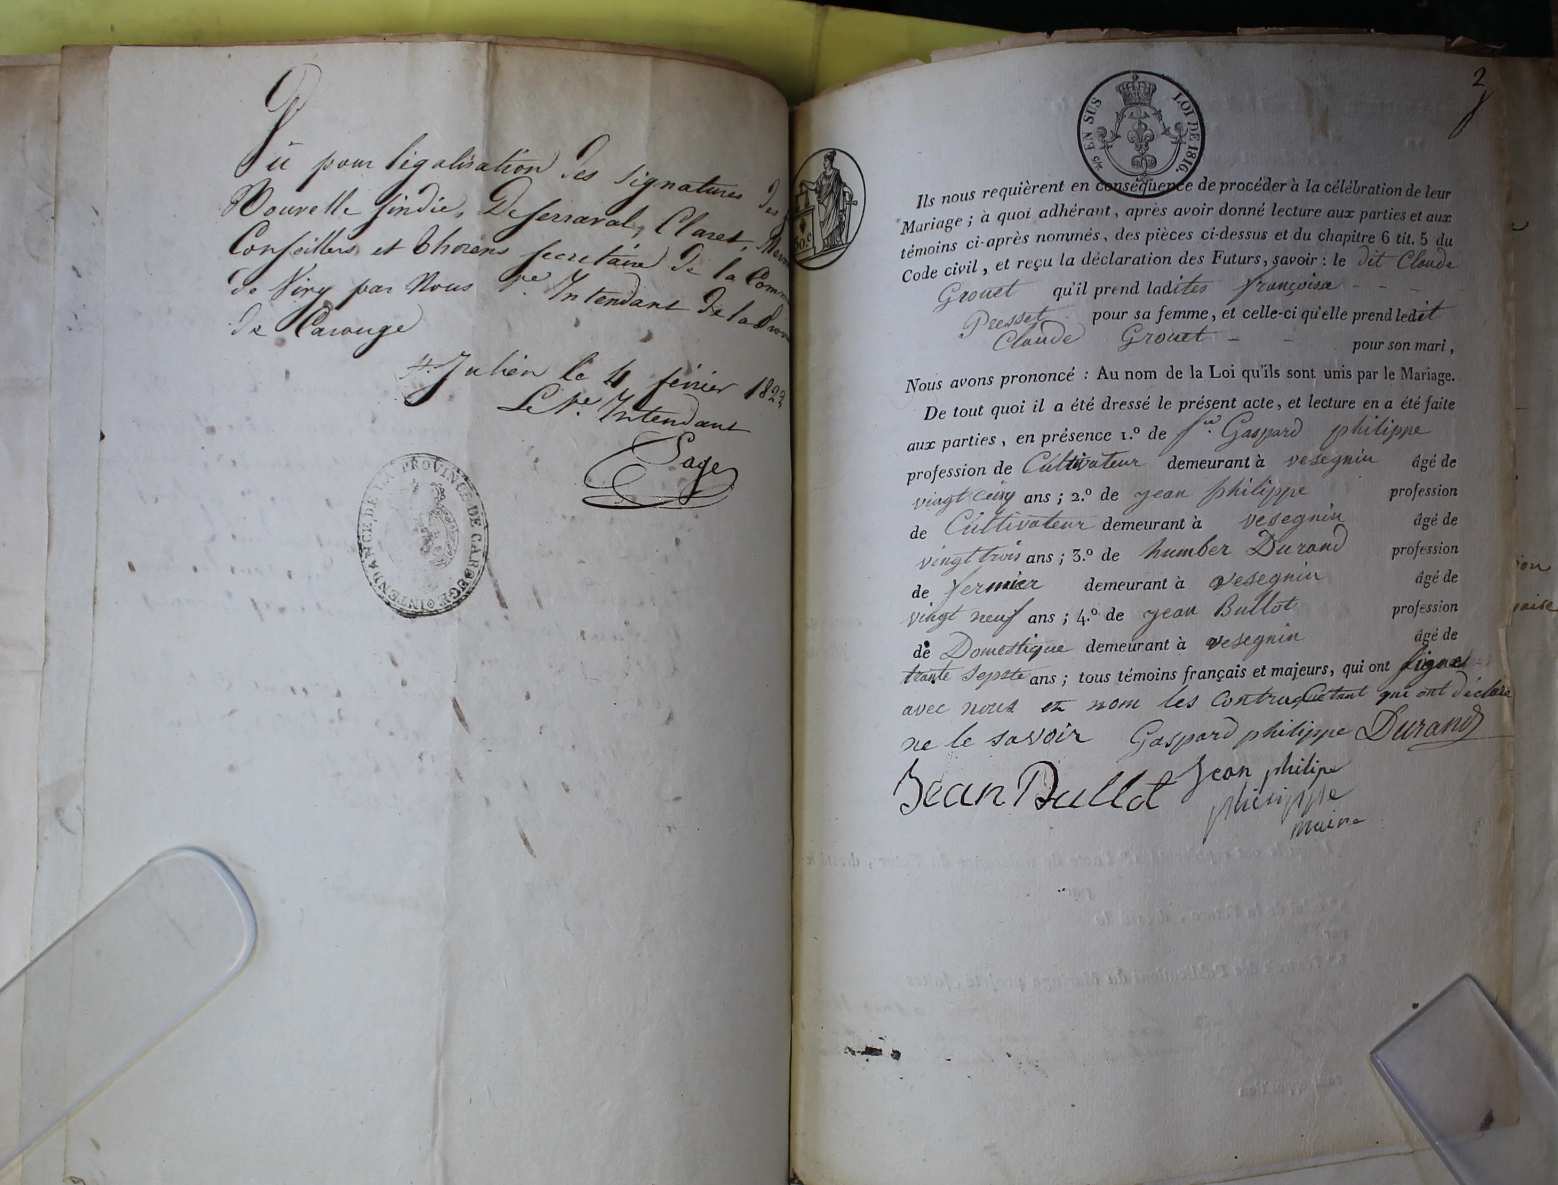 Vû pour légalisation des signatures des
Nouvelle sindic, Deserraval, Claret,
Conseillers et Thorens secretaire de la Comm
de Viry par Nous Vce Intendant de la Prov
de Carouge
St Julien le 4 février 1822
Le Vce Intendant
Sage
INTENDANCE DE LA PROVINCE DE CAROUGE
2
EN SUS LOI DE 1816
50 c
Ils nous requièrent en conséquence de procéder à la célébration de leur
Mariage ; à quoi adhérant, après avoir donné lecture aux parties et aux
témoins ci-après nommés, des pièces ci-dessus et du chapitre 6 tit. 5 du
Code civil, et reçu la déclaration des Futurs, savoir : le dit Claude
Grouet qu'il prend ladites françoise - - - -
Pcesset pour sa femme, et celle-ci qu'elle prend ledit
Claude Grouet - - pour son mari,
Nous avons prononcé : Au nom de la Loi qu'ils sont unis par le Mariage.
De tout quoi il a été dressé le présent acte, et lecture en a été faite
aux parties, en présence 1.º de Gaspard philippe
profession de Cultivateur demeurant à vesegnin âgé de
vingt cinq ans ; 2.º de jean philippe profession
de Cultivateur demeurant à vesegnin âgé de
vingt trois ans ; 3.º de humber Durand profession
de fermier demeurant à vesegnin âgé de
vingt neuf ans ; 4.º de jean Bullot profession
de Domestique demeurant à vesegnin âgé de
trante Sepste ans ; tous témoins français et majeurs, qui ont signes
avec nous et nom les contractant qui ont déclaré
ne le savoir Gaspard philippe Durand
Jean Bullot Jean philipe
philippe
maire